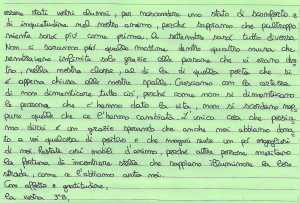 essere stati vostri alunni, per nascondere uno stato di sconforto e
di inquietudine nel nostro animo, perché sappiamo che purtroppo
niente sarà più come prima. A settembre sarà tutto diverso.
Non ci saranno più quelle mattine dentro quattro mura che
sembravano infinite solo grazie alle persone che vi erano den-
tro, nella nostra classe, al di là di quella porta che si
è appena chiusa alle nostre spalle. Usciamo con la certezza
di non dimenticare tutto ciò, perché come non si dimenticano
le persone che c'hanno dato la vita, non si scordano nep-
pure quelle che ce l'hanno cambiata. L'unica cosa che possia-
mo dirvi è un grazie sperando che anche noi abbiamo dona-
to a voi qualcosa di positivo e che magari siate un po' orgogliosi
di noi. Restate così nobili d'animo, perché altre persone meritano
la fortuna di incontrare stelle che sappiano illuminare la loro
strada, come a l'abbiamo avuta noi.
Con affetto e gratitudine,
la vostra 3°B,